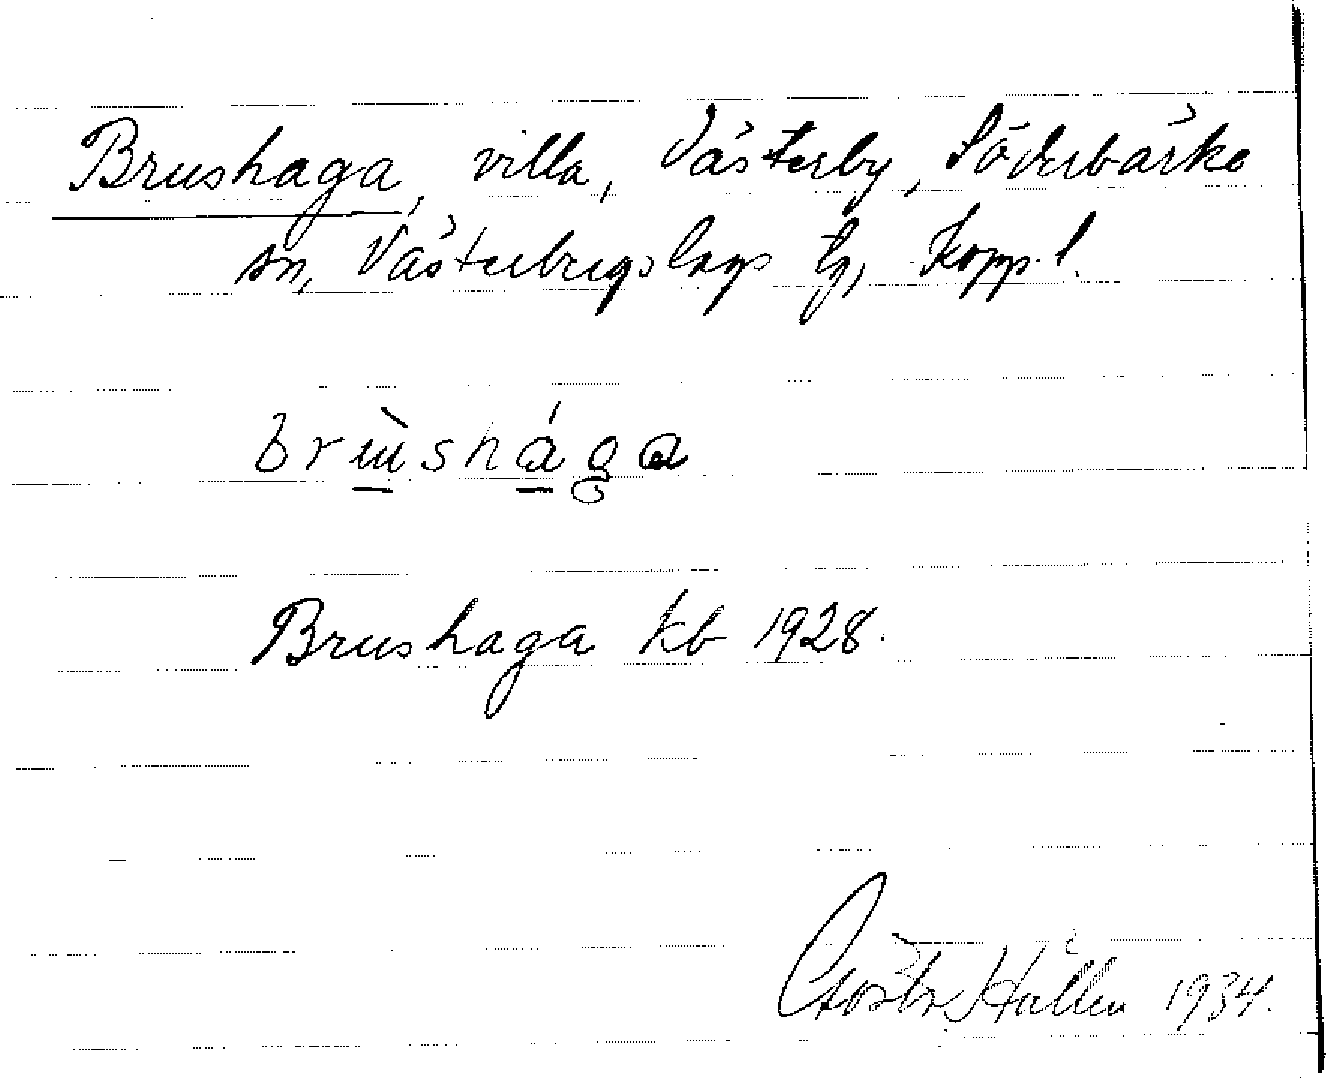 Brushaga, villa, Västerby, Söderbärke
sn, Västerbergslags tg, Kopp. l.
brùshága
Brushaga kb 1928.
Gösta Hållen 1934.